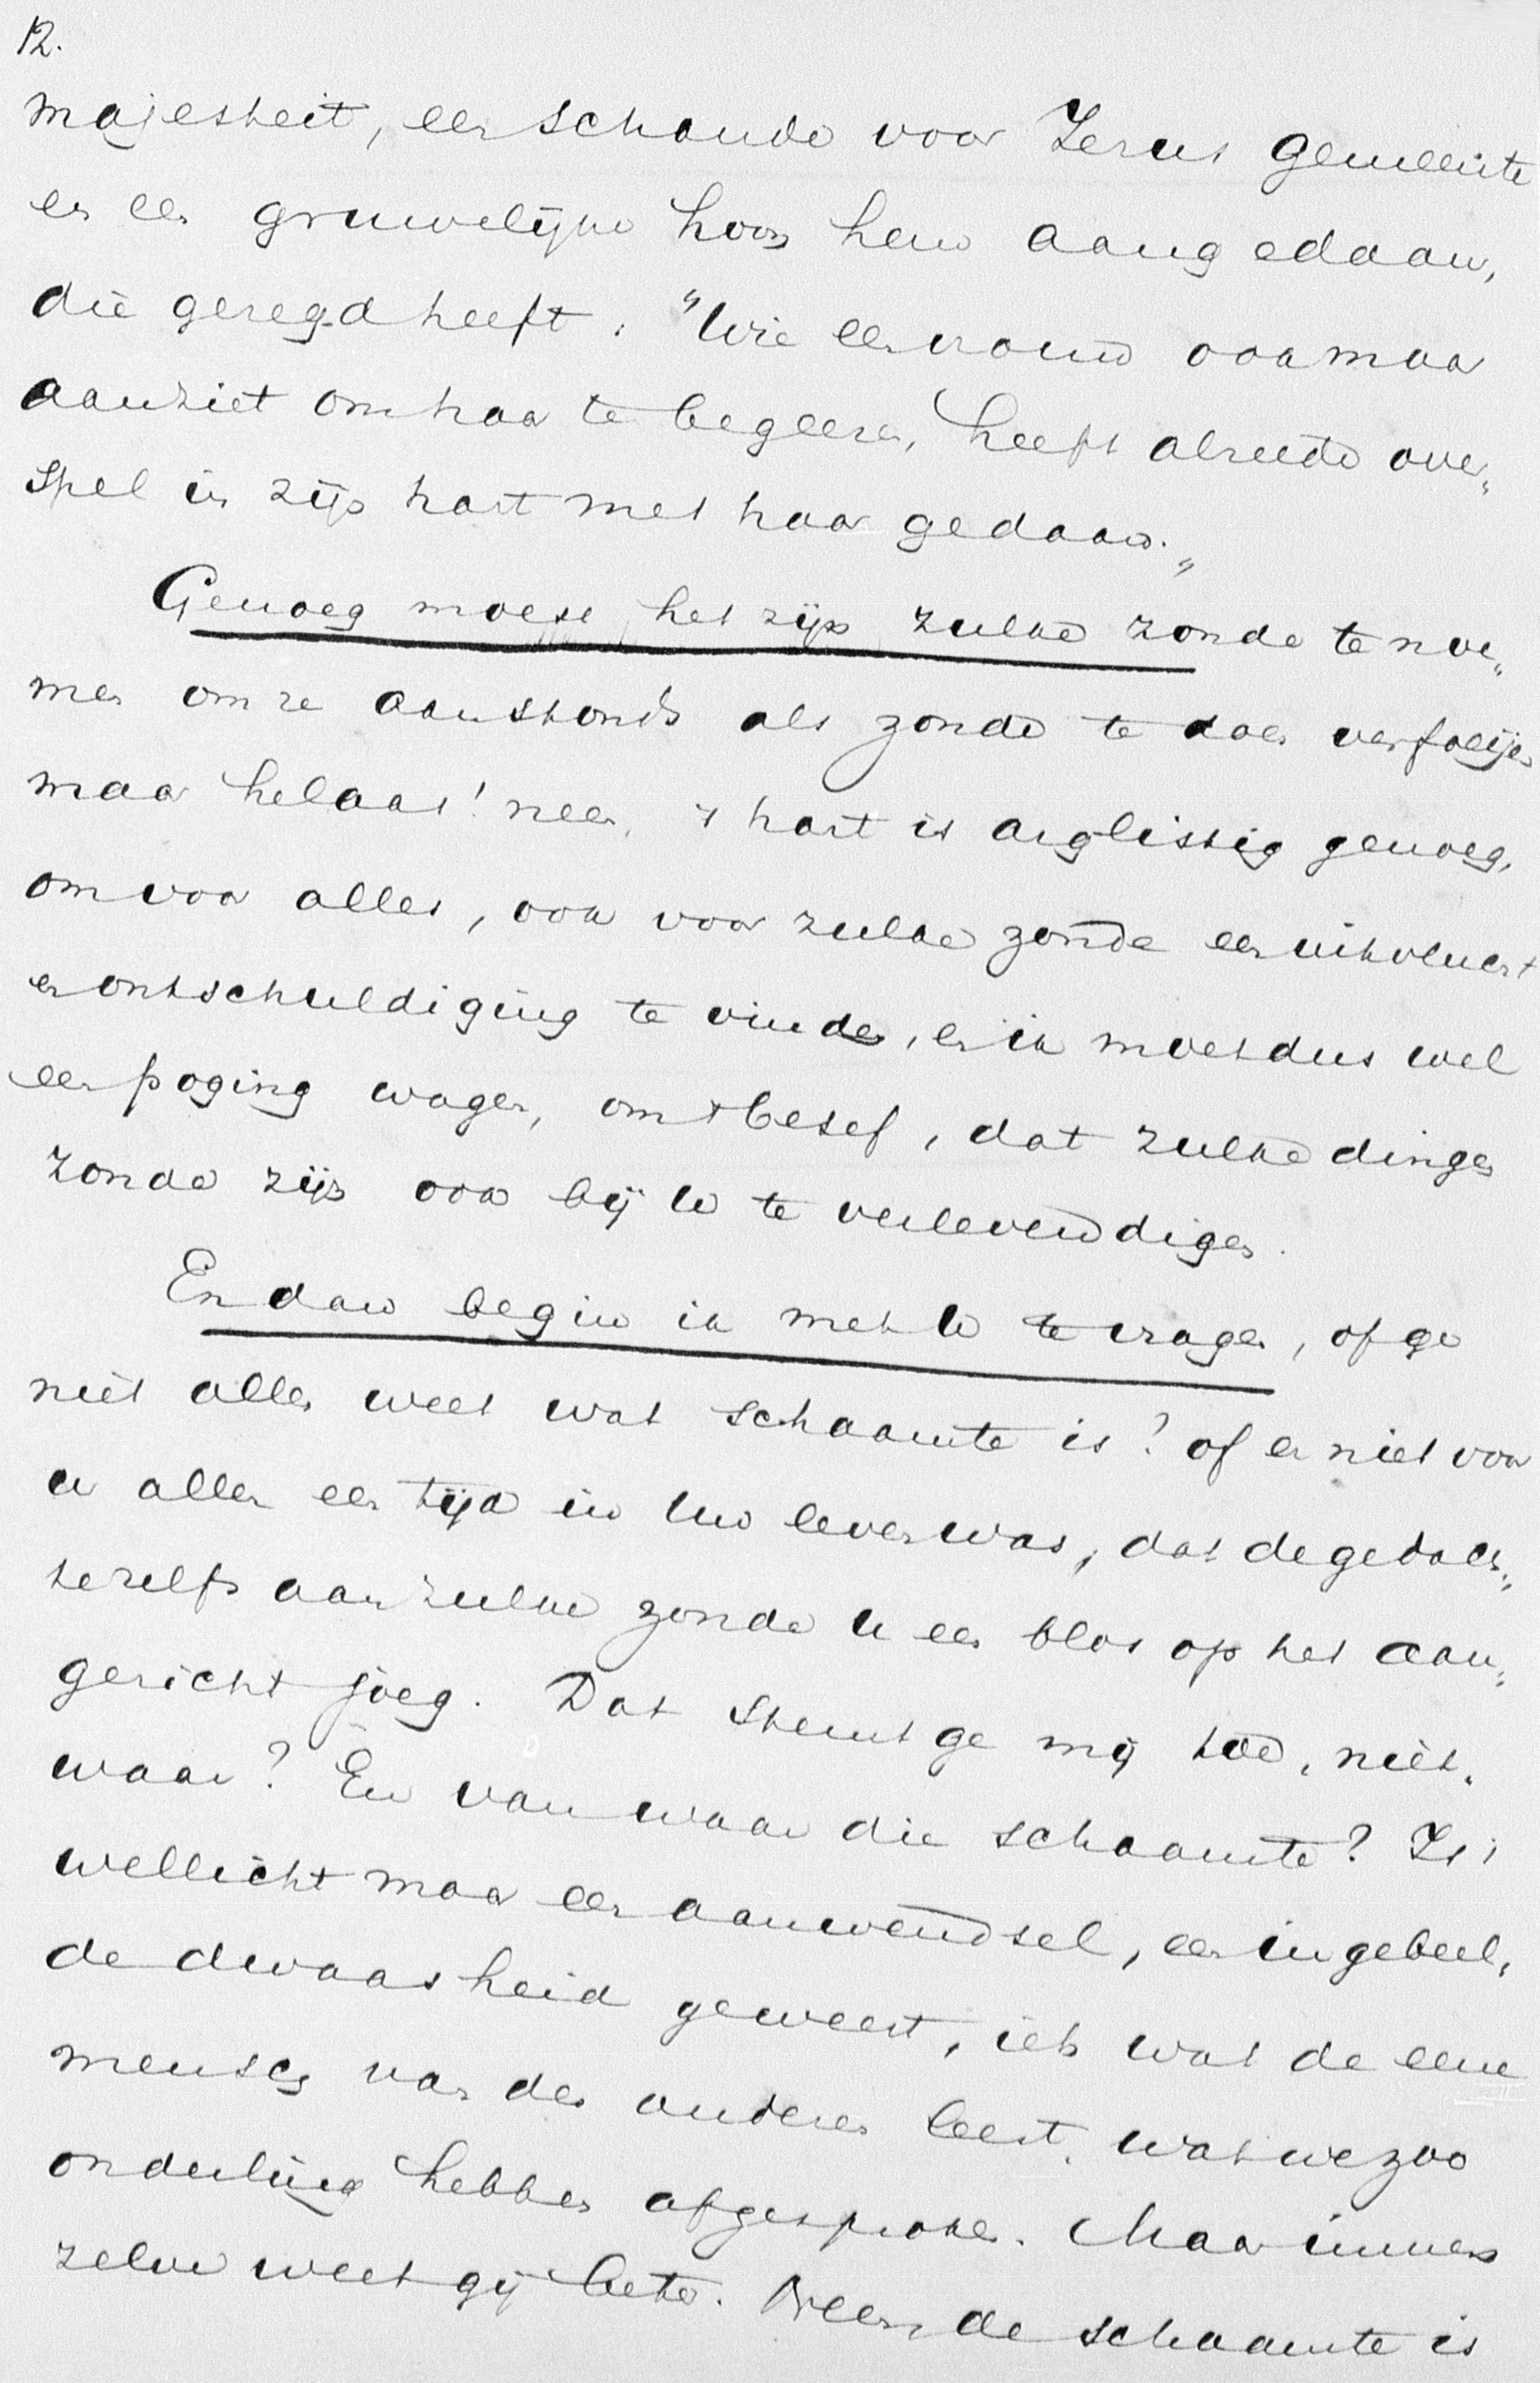 12.
majesteit, een schande voor Jezus gemeente
en een gruwelijke hoon hem aangedaan,
die gezegd heeft: "Wie een vrouw ook maar
aanziet om haar te begeeren, heeft alreede over„
spel in zijn hart met haar gedaan.„
Genoeg moest het zijn zulke zonde te noe„
men om ze aanstonds als zonde te doen verfoeijen
maar helaas! neen, 't hart is arglistig genoeg,
om voor alles, ook voor zulke zonde een uitvlucht
en ontschuldiging te vinden, en ik moet dus wel
een poging wagen, om 't besef, dat zulke dingen
zonde zijn ook bij U te verlevendigen.
En dan begin ik met U te vragen, of ge
niet allen weet wat schaamte is? of er niet voor
u allen een tijd in Uw leven was, dat de gedach„
te zelfs aan zulke zonde U een blos op het aan„
gezicht joeg. Dat stemt ge mij toe, niet
waar? En van waar die schaamte? Is 't
wellicht maar een aanwendsel, een ingebeel„
de dwaasheid geweest, iets wat de eene
mensch van den anderen leert, wat we zoo
onderling hebben afgesproken. Maar immers
zelve weet gij beter. Neen de schaamte is